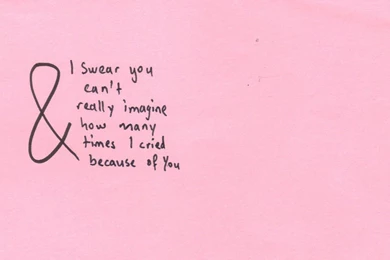 & I swear you
can't
really imagine
how many
times I cried
because of You